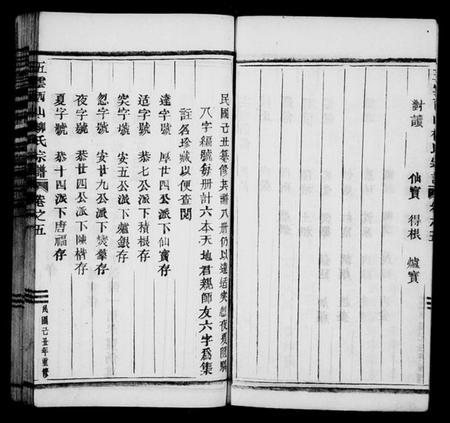 對讀 仙寶 得根 爐寶
民國己丑纂修其譜八冊仍以達适突忽夜夏隨騧
八字編號每冊計六本天地君親師友六字為集
註名珍藏以便查閱
達字號 厚廿四公派下仙寶存
适字號 恭七公派下積根存
突字號 安五公派下爐銀存
忽字號 安廿九公派下存
夜字號 恭廿四公派下陳楷存
夏字號 恭十四派下唐福存
五雲西山柳氏宗譜 卷之五
民國己丑年重修